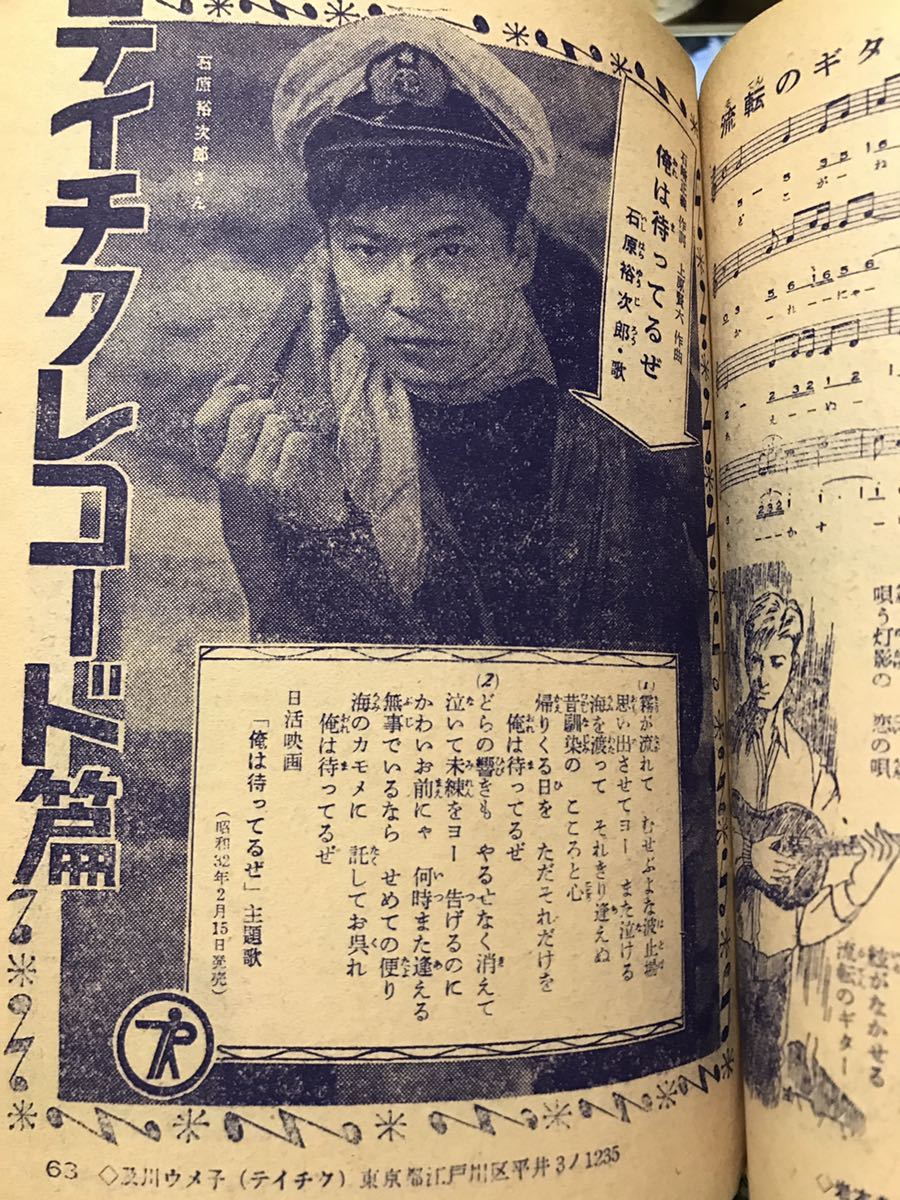 テイチクレコード篇
石原裕次郎さん
石崎正美 作詞 上原賢六 作曲
俺は待ってるぜ
石原裕次郎・歌
(1)霧が流れて むせぶよな波止場
思い出させてヨー また泣ける
海を渡って それきり逢えぬ
昔馴染の こころと心
帰りくる日を ただそれだけを
俺は待ってるぜ
(2)どらの響きも やるせなく消えて
泣いて未練をヨー 告げるのに
かわいお前にゃ 何時また逢える
無事でいるなら せめての便り
海のカモメに 託してお呉れ
俺は待ってるぜ
日活映画
「俺は待ってるぜ」主題歌
(昭和32年2月15日発売)
63 ◇及川ウメ子(テイチク)東京都江戸川区平井3ノ1235
流転のギタ
どこがーね
かーれーにゃー
えーぬー
ーーーかすー
唄う灯影の 恋の唄
なかせる
流転のギター